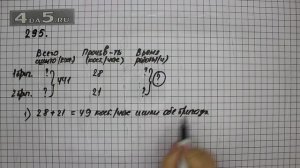 4DA5.RU
295.
Всего сшито (кос.) Произв-ть (кос./час) Время работы (ч)
1 бриг. ? 28 ?
441 ?
2 бриг. ? 21 ?
1) 28 + 21 = 49 кос./час шили обе бригады